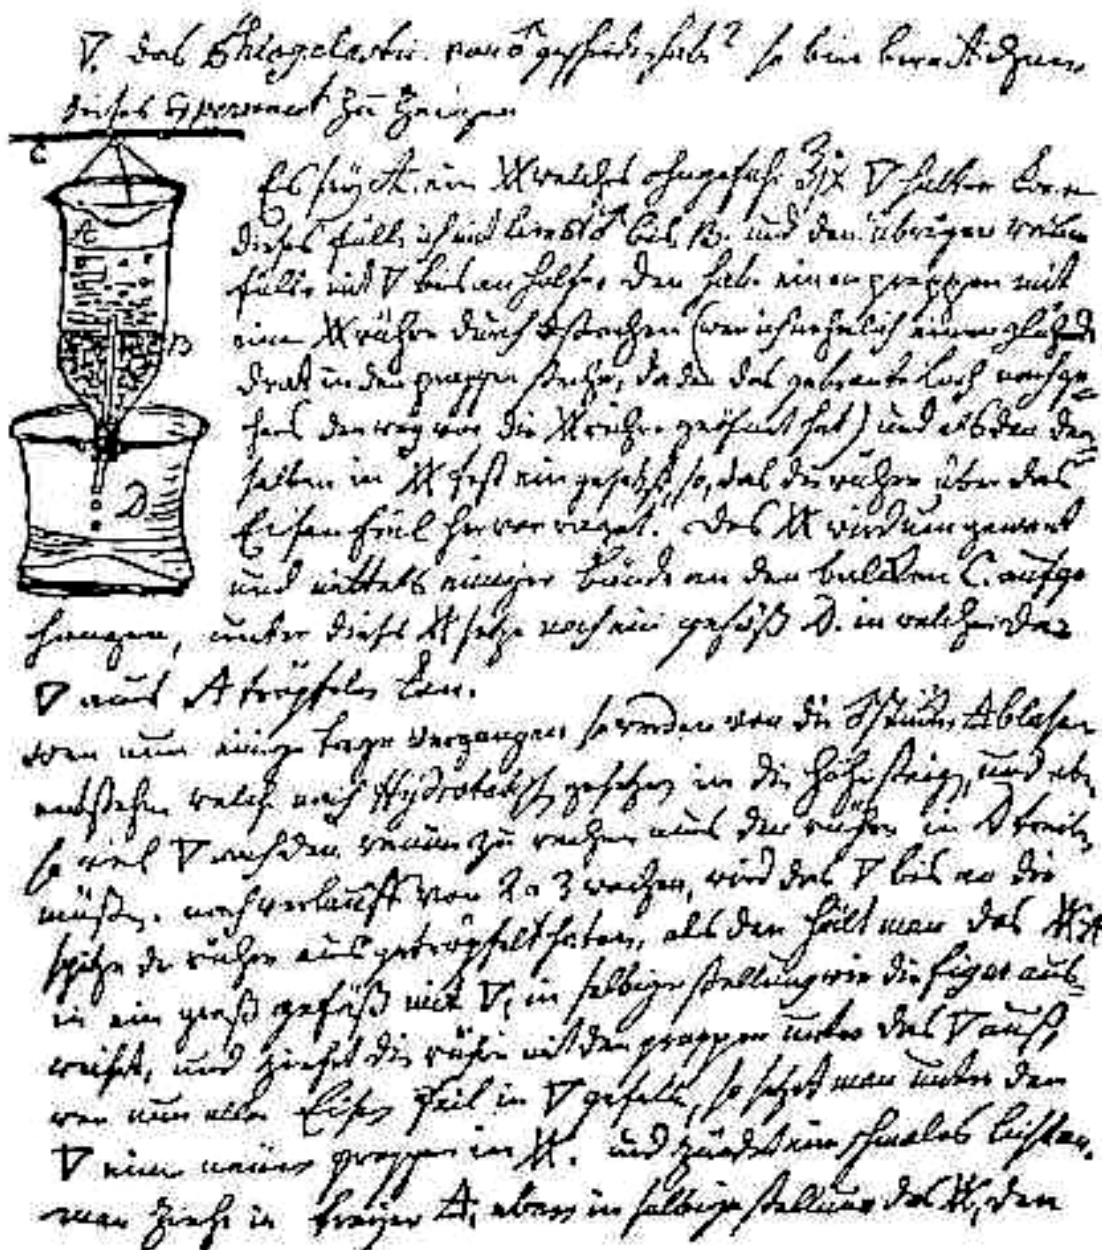 ▽. das phlogelestic. von ♂ geschiedt hab? so bin bereit ihnen
dieses Experment zu zeigen
C
Es seÿ A. ein welches ohngefehr ▽ halten kan
A
dieses fülle ich mit limat ♂ bis B. und den übrigen raum
fülle mit ▽ bis an halse, den hab einen proppen mit
B
eine röhre durch stochen (wor ich nehmlich einen glühend
drat in den proppen steche, da den das gebrante Loch nachge=
hens den weg vor die röhre geöfnet hat) und alsden den=
D
selben in fest ein gesetzt, so, das die röhre über das
Eisen feil hervor raget. Das wird umgewent
und mittels einiger bände an den balcken C. aufge
hangen, unter dieses setze noch ein gefäß D. in welches das
▽ aus A tröpfeln kan.
wen nun einige tage vergangen so werden von die blasen
entstehen welche nach Hydrostatisch gesetzen in die höhe steigen, und eben
so viel ▽ nach den raum zu rechen aus der röhre in D treiben
müßen. nach verlauff von 2 a 3 wochen, wird das ▽ bis an die
spitze der röhre aus getröpfelt haben, als den hält man das A
in ein groß gefäß mit ▽, in selbige stellung wie die figur aus=
weiset, und ziehet die röhre mit den proppen unter das ▽ auß,
wen nun alle Eisen feil in ▽ gefallen, so setzet man unter den
▽ einen neuen proppen in . und zündet ein schmales lichtan.
man ziehe in freyer , eben in selbige stellung des , den